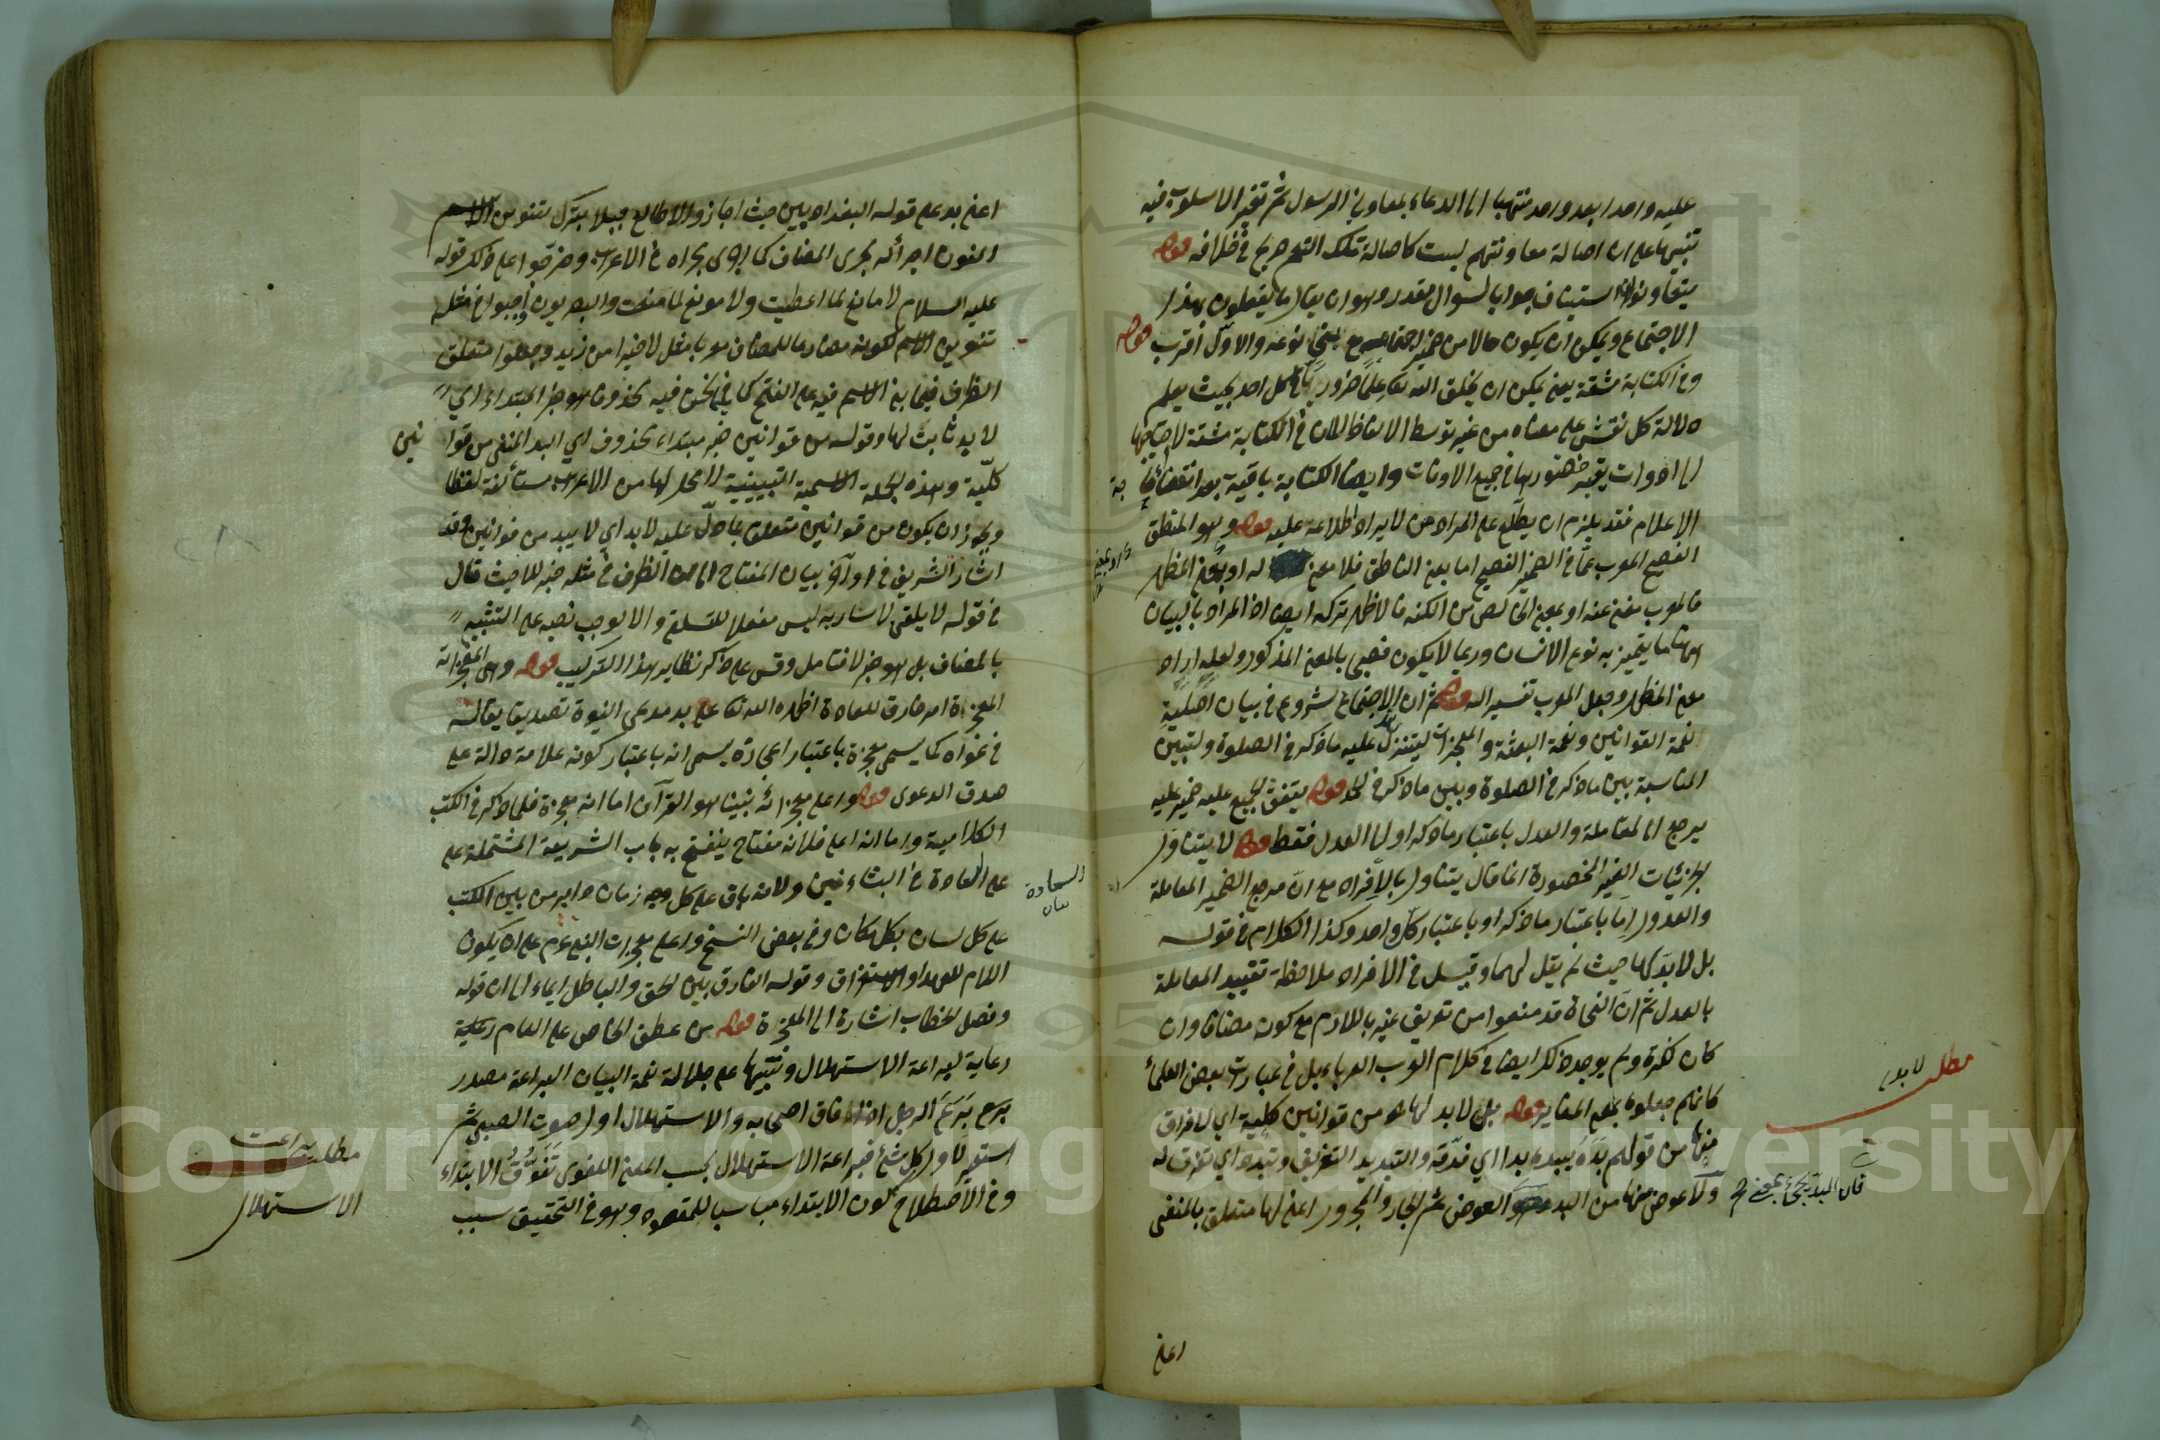 عليه واحدا بعد واحد منتهيا الى الدعاء لمعاوني الرسول ثم تغير الاسلوب فيه
تنبيها على ان اصالة معاونتهم ليست كاصالة تلك النعم صريح في خلافه قوله
استيناف جواب لسوال مقدر وهو ان يقال ما يفعلون بهذا
الاجتماع ويمكن ان يكون حالا من ضمير نوعه والاول اقرب قوله
وفي الكتابة مشقة يعني يمكن ان يخلق الله تعا علما ضروريا في كل احد بحيث يعلم
دلالة كل نقش على معناه من غير توسط الالفاظ لكن في الكتابة مشقة لاحتياجها
الى ادوات حضورها في جميع الاوقات وايضا الكتابة باقية بعد انقضاء حاجة
الاعلام فقد يلزم ان يطلع على المراد من لا يراد اطلاعه عليه قوله وهو المنطق
الفصيح المعرب عما في الضمير الفصيح اما بمعنى الناطق فلا معنى له او بمعنى المظهر
فالمعرب مغن عنه او بمعنى الخالص من اللكنة فالاظهر تركه ايضا اذ المراد بالبيان
ههنا ما يتميز به نوع الانسان وربما لا يكون فصيحا بالمعنى المذكور ولعله اراد
معنى المظهر وجعل المعرب تفسيرا له قوله ثم ان الاجتماع شروع في بيان اصلية
نعمة القوانين ونعمة البعثة والمعجزات ليتنزل عليه ما ذكر في الصلوة وليتبين
المناسبة بين ما ذكر في الصلوة وبين ما ذكر في الحمد قوله يتفق الجميع عليه ضمير عليه
يرجع الى المعاملة والعدل باعتبار ما ذكر او الى العدل فقط قوله لا يتناول
الجزئيات الغير المحصورة انما قال يتناول بالافراد مع ان مرجع الضمير المعاملة
والعدل اما باعتبار ما ذكر او باعتبار كل واحد وكذا الكلام في قوله
بل لا بد لها حيث لم يقل لهما وقيل في الافراد ملاحظة تقييد المعاملة
بالعدل ثم ان النحاة قد منعوا من تعريف غير باللام مع كونه مضافا وان
كان نكرة ولم يوجد ذلك ايضا في كلام العرب العرباء بل في عبارت بعض العلماء
كانهم جعلوه بمعنى المغاير قوله بل لا بد لها من قوانين كلية اي لا فراق
منها من قولهم بدد يبدد بدا اي فرقه والتبديد التفريق وتبدد اي تفرق له
ولا عوض منها من البد وهو العوض ثم الجار والمجرور اعني لها متعلق بالمنفي
اعني
مطلب لا بد
فان البد يجئ بمعنى
اعني بد على قوله البغداديين حيث اجازوا لا طالع جبلا بترك تنوين الاسم
المنون اجرائه مجرى المضاف كما اجرى مجراه في الاعراب وخرجوا على ذلك قوله
عليه السلام لا مانع لما اعطيت ولا معطي لما منعت والبصريون اوجبوا في مثله
تنوين الاسم لكونه مضارعا للمضاف معربا مثل لا خيرا من زيد وجعلوا متعلق
الظرف فيما بنى الاسم فيه على الفتح كما في نحن فيه محذوفا هو خبر المبتداء اي
لا بد ثابت لها وقوله من قوانين خبر مبتداء محذوف اي البد المنفي من قوانين
كلية وهذه الجملة الاسمية التبيينية لا محل لها من الاعراب مستأنفة لفظا
ويجوز ان يكون من قوانين متعلق بما دل عليه لا بد اي لا يبد من قوانين وقد
اشار الشريف في اواخر بيان المفتاح الى ان الظرف في مثله خبر للا حيث قال
في قوله لا يلقى لاشاربه ليس مفعلا للتلقي والا لوجب نصبه على التشبيه
بالمضاف بل هو خبر لا فتامل وقس على ذكر نظاير هذا التركيب قوله وهي المعجزات
المعجزة امر خارق للعادة اظهره الله تعا على يد مدعي النبوة تصديقا يقال له
في دعواه كما يسمى معجزة باعتبار اعجازه يسمى اية باعتبار كونه علامة دالة على
صدق الدعوى قوله واعلى معجزاته نبينا هو القرآن اما انه معجزة فلما ذكر في الكتب
الكلامية واما انه اعلى فلانه مفتاح ينفتح به باب الشريعة المشتملة على
على السعادة في النشاءتين ولانه باق على كل وجه زمان دايرا من بين الكتب
على كل لسان بكل مكان وفي بعض النسخ واعلى معجزات النبي عم على ان يكون
اللام للعهد او الاستغراق وقوله الفارق بين الحق والباطل ايماء الى ان قوله
وفصل الخطاب اشارة الى المعجزة قوله من عطف الخاص على العام رعاية
رعاية لبراعة الاستهلال وتنبيها على جلالة نعمة البيان البراعة مصدر
برع الرجل اذا فاق اصحابه والاستهلال اول صوت الصبي ثم
استعير لاول كل شئ فبراعة الاستهلال بحسب المعنى اللغوي تفوق الابتداء
وفي الاصطلاح كون الابتداء مناسبا للمقصود وهو في التحقيق سبب
السعادة
مطلب براعت
الاستهلال
Copyright © King Saud University